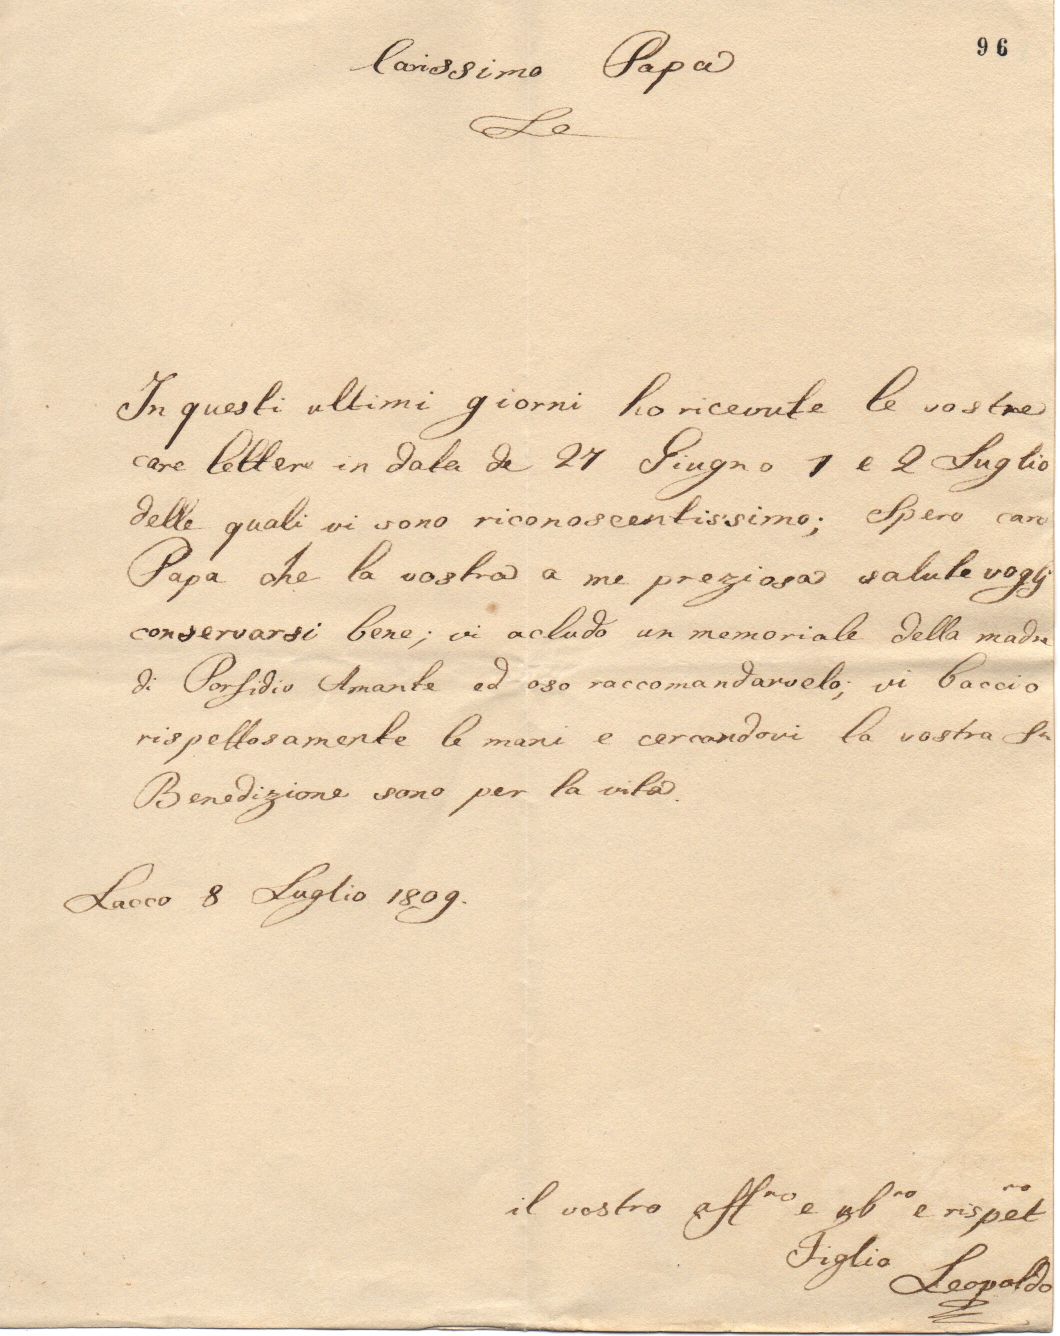 96
Carissimo Papa
In questi ultimi giorni ho ricevute le vostre
care lettere in data de 27 Giugno 1 e 2 Luglio
delle quali vi sono riconoscentissimo; Spero caro
Papa che la vostra a me preziosa salute vogli
conservarsi bene; vi acludo un memoriale della madre
di Porfidio Amante ed oso raccomandarvelo; vi baccio
rispettosamente le mani e cercandovi la vostra
Benedizione sono per la vita.
Lacco 8 Luglio 1809.
il vostro aff.mo e ub.mo e rispet.mo
Figlio
Leopoldo